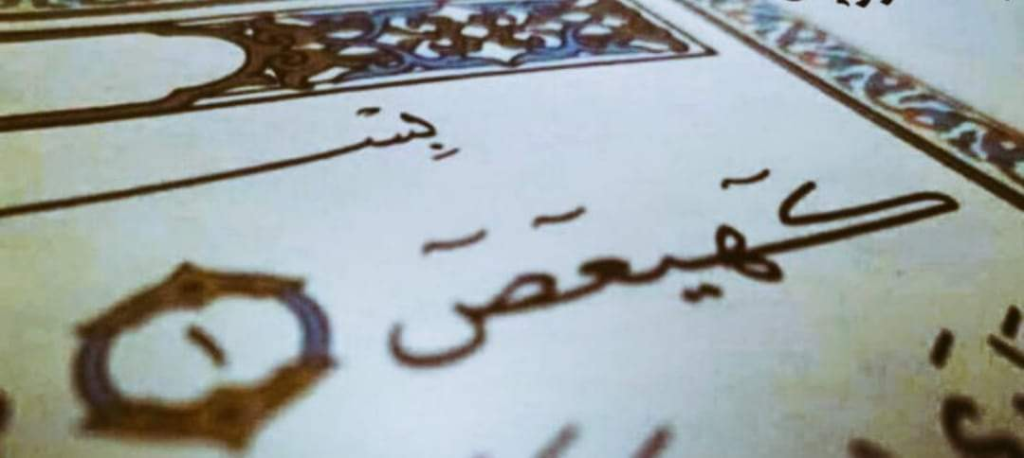 بِسْ
كٓهيعٓصٓ ١